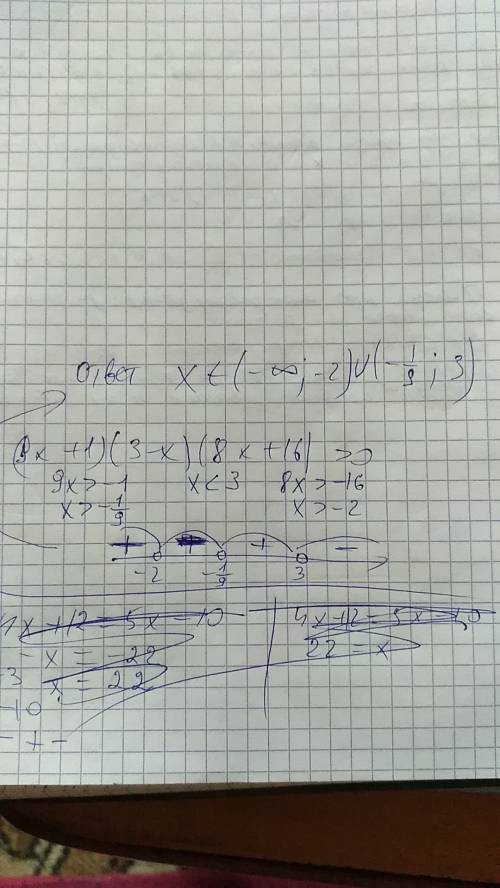 Ответ x ∈ (-∞; -2) ∪ (-1/9; 3)
(9x + 1)(3-x)(8x+16) > 0
9x > -1 x < 3 8x > -16
x > -1/9 x > -2
+ - + -
-2 -1/9 3
4x + 12 = 5x - 10 4x + 12 = 5x - 10
- x = -22 22 = x
x = 22
-3
-10
- + -